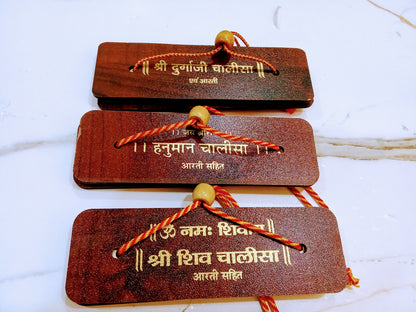 ॥ श्री दुर्गाजी चालीसा ॥
एवं आरती
।। जय श्री
।। हनुमान चालीसा ।।
आरती सहित
॥ॐ नमः शिवाय॥
॥श्री शिव चालीसा॥
आरती सहित